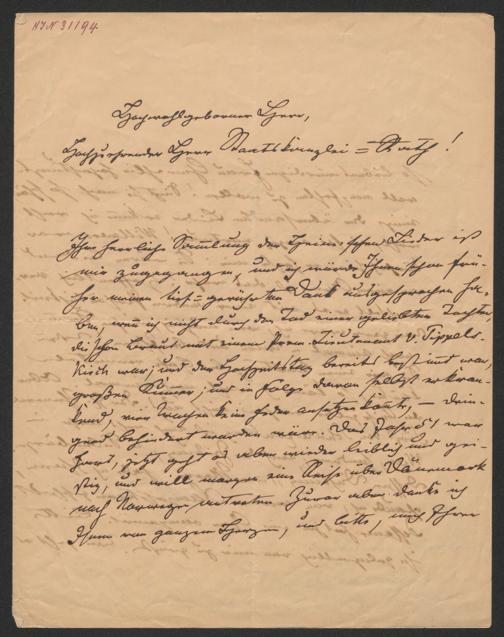 HIN 31194
Hochwohlgeborener Herr,
Hochzuehrender Herr Staatskanzlei=Rath!
Ihre herrliche Sammlung der Heine'schen Lieder ist
mir zugegangen, und ich würde Ihnen schon frü-
her meinen tief=gerührten Dank ausgesprochen ha-
ben, wenn ich nicht durch den Tod einer geliebten Tochter,
die schon Braut mit einem Prem. Lieutenant v. Tippels-
kirch war, und der Hochzeitstag bereits bestimmt war,
großen Kummer, und in Folge davon selbst erkran-
kend, vier Wochen keine Feder ansetzen konnte, — drin-
gend behindert worden wäre. Das war
jetzt geht es aber wieder leiblich und gei-
stig, und will morgen eine Reise über Dänemark
nach Norwegen antreten. Zuvor aber danke ich
Ihnen von ganzem Herzen, und bitte, mich Ihrer